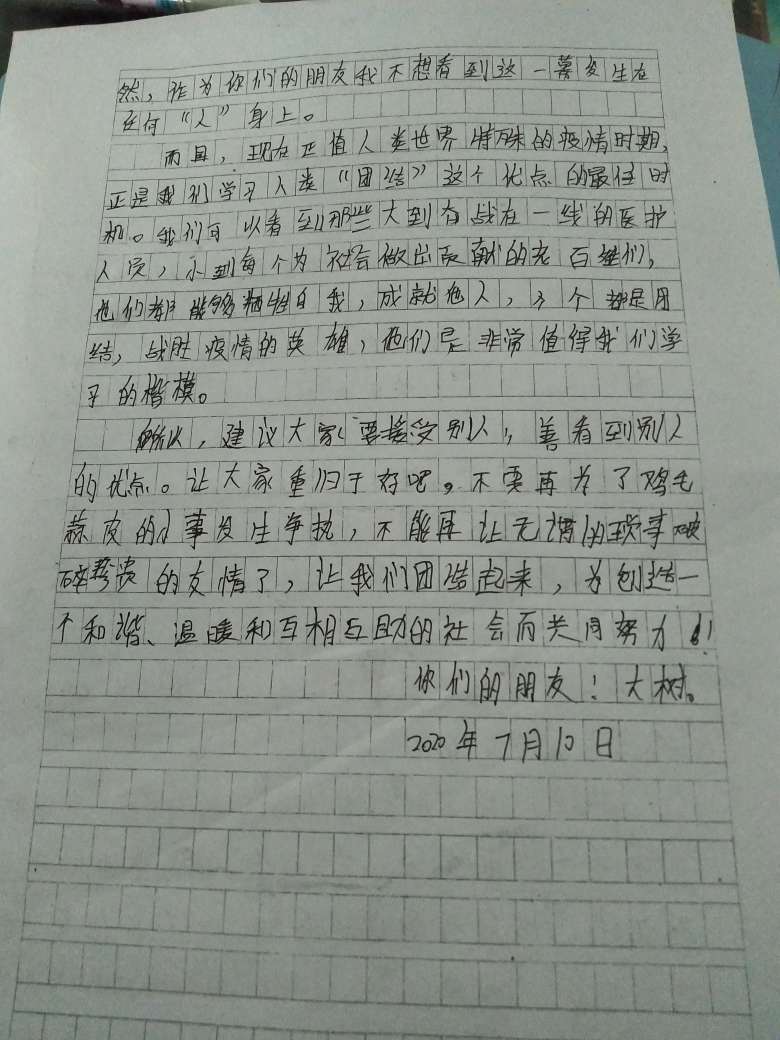 然，作为你们的朋友我不想看到这一幕发生在
任何“人”身上。
而且，现在正值人类世界特殊的疫情时期，
正是我们学习人类“团结”这个优点的最佳时
机。我们可以看到那些大到奋战在一线的医护
人员，小到每个为社会做出贡献的老百姓们，
他们都能够牺牲自我，成就他人，个都是用
结，战胜疫情的英雄，他们是非常值得我们学
习的楷模。
所以，建议大家要接受别人，善看到别人
的优点。让大家重归于好吧。不要再为了鸡毛
蒜皮的小事发生争执，不能再让无谓的琐事破
碎珍贵的友情了，让我们团结起来，为创造一
个和谐、温暖和互相互助的社会而共同努力！
你们的朋友！大树。
2020年7月10日